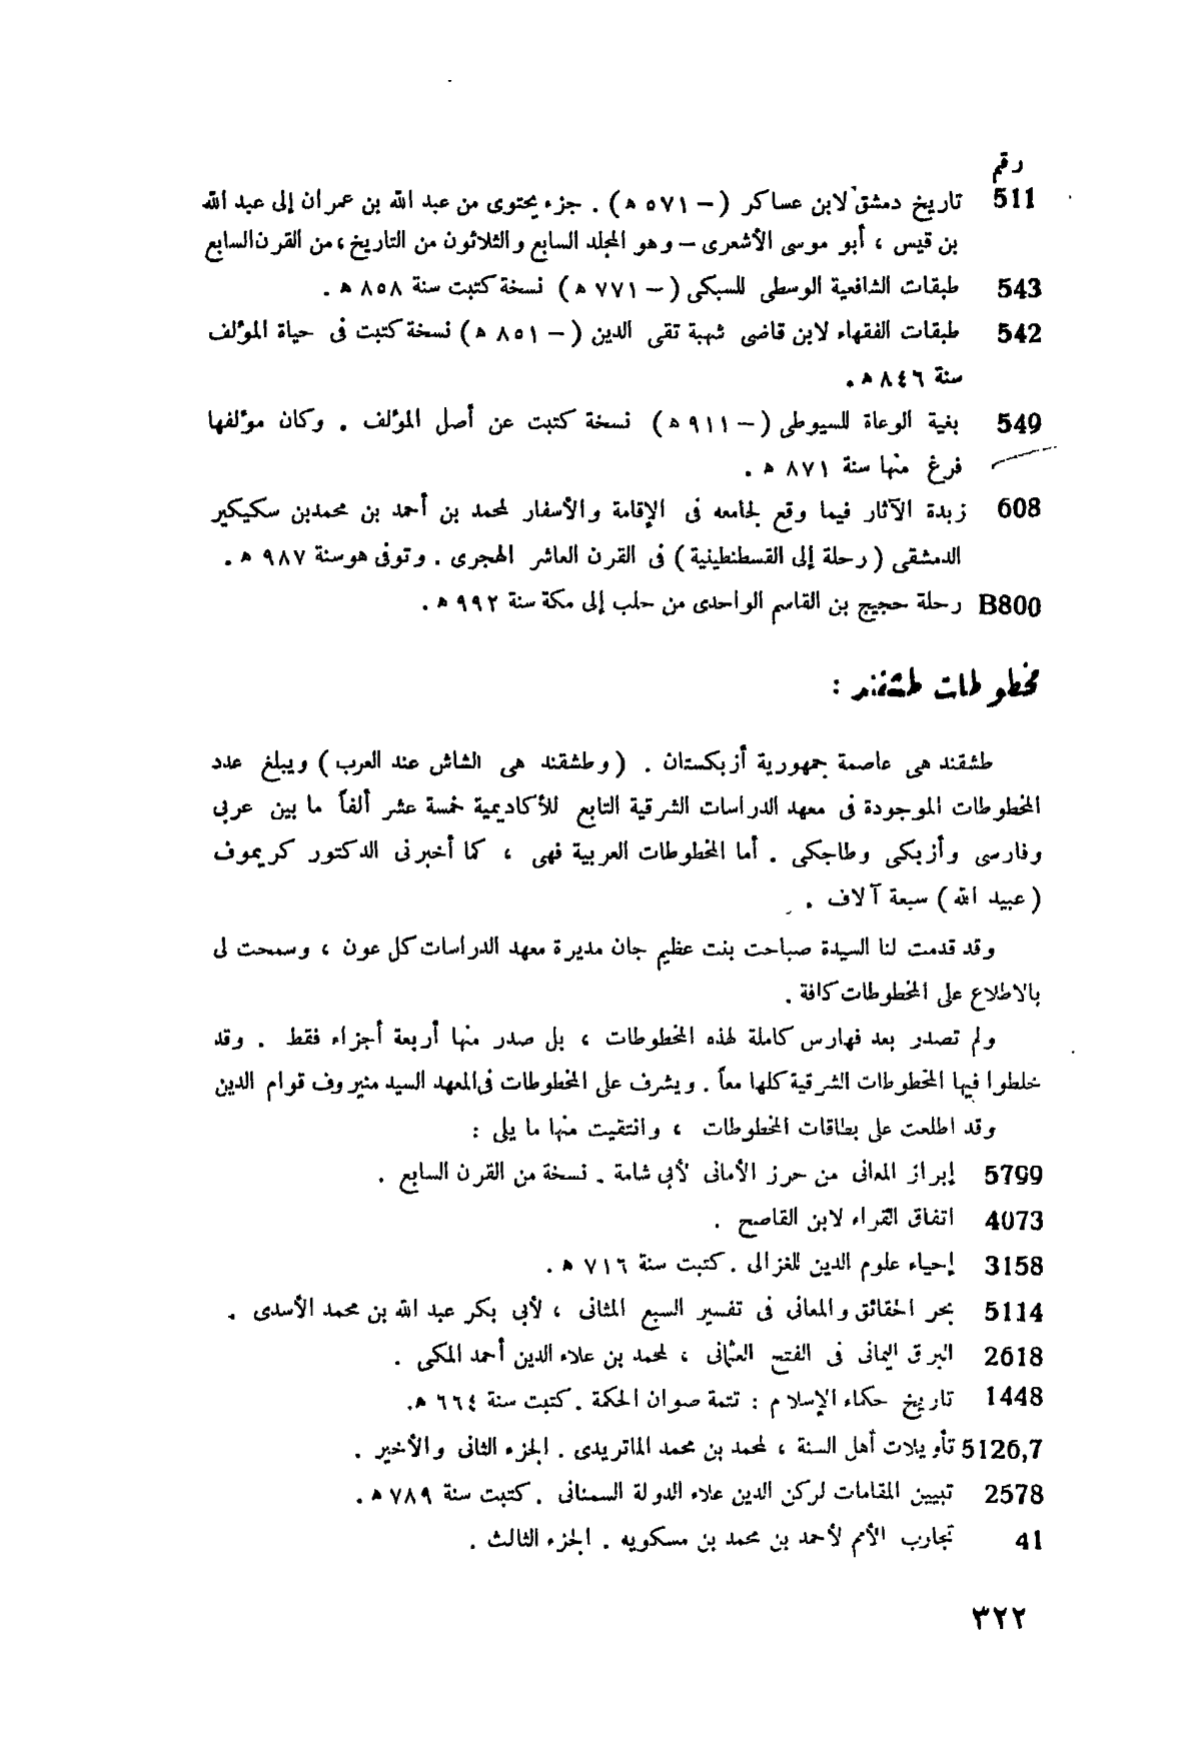 رقم
511 تاريخ دمشق لابن عساكر ( – ٥٧١ ه ) . جزء يحتوى من عبد الله بن عمران إلى عبد الله
بن قيس ، أبو موسى الأشعرى – وهو المجلد السابع والثلاثون من التاريخ ، من القرن السابع
543 طبقات الشافعية الوسطى للسبكى ( – ٧٧١ ه ) نسخة كتبت سنة ٨٥٨ ه .
542 طبقات الفقهاء لابن قاضى شهبة تقى الدين ( – ٨٥١ ه ) نسخة كتبت فى حياة المؤلف
سنة ٨٤٦ ه .
549 بغية الوعاة للسيوطى ( – ٩١١ ه ) نسخة كتبت عن أصل المؤلف . وكان مؤلفها
فرغ منها سنة ٨٧١ ه .
608 زبدة الآثار فيما وقع لجامعه فى الإقامة والأسفار لمحمد بن أحمد بن محمد بن سكيكير
الدمشقى ( رحلة إلى القسطنطينية ) فى القرن العاشر الهجرى . وتوفى هو سنة ٩٨٧ ه .
B800 رحلة حجيج بن القاسم الواحدى من حلب إلى مكة سنة ٩٩٢ ه .
مخطوطات طشقند :
طشقند هى عاصمة جمهورية أزبكستان . ( وطشقند هى الشاش عند العرب ) ويبلغ عدد
المخطوطات الموجودة فى معهد الدراسات الشرقية التابع للأكاديمية خمسة عشر ألفاً ما بين عربى
وفارسى وأزبكى وطاجكى . أما المخطوطات العربية فهى ، كما أخبرنى الدكتور كريموف
( عبيد الله ) سبعة آلاف .
وقد قدمت لنا السيدة صباحت بنت عظيم جان مديرة معهد الدراسات كل عون ، وسمحت لى
بالاطلاع على المخطوطات كافة .
ولم تصدر بعد فهارس كاملة لهذه المخطوطات ، بل صدر منها أربعة أجزاء فقط . وقد
خلطوا فيها المخطوطات الشرقية كلها معاً . ويشرف على المخطوطات فى المعهد السيد منيروف قوام الدين
وقد اطلعت على بطاقات المخطوطات ، وانتقيت منها ما يلى :
5799 إبراز المعانى من حرز الأمانى لأبى شامة . نسخة من القرن السابع .
4073 اتفاق القراء لابن القاصح .
3158 إحياء علوم الدين للغزالى . كتبت سنة ٧١٦ ه .
5114 بحر الحقائق والمعانى فى تفسير السبع المثانى ، لأبى بكر عبد الله بن محمد الأسدى .
2618 البرق اليمانى فى الفتح العثمانى ، لمحمد بن علاء الدين أحمد المكى .
1448 تاريخ حكماء الإسلام : تتمة صوان الحكمة . كتبت سنة ٦٦٤ ه .
5126,7 تأويلات أهل السنة ، لمحمد بن محمد الماتريدى . الجزء الثانى والأخير .
2578 تبيين المقامات لركن الدين علاء الدولة السمنانى . كتبت سنة ٧٨٩ ه .
41 تجارب الأمم لأحمد بن محمد بن مسكويه . الجزء الثالث .
٣٢٢